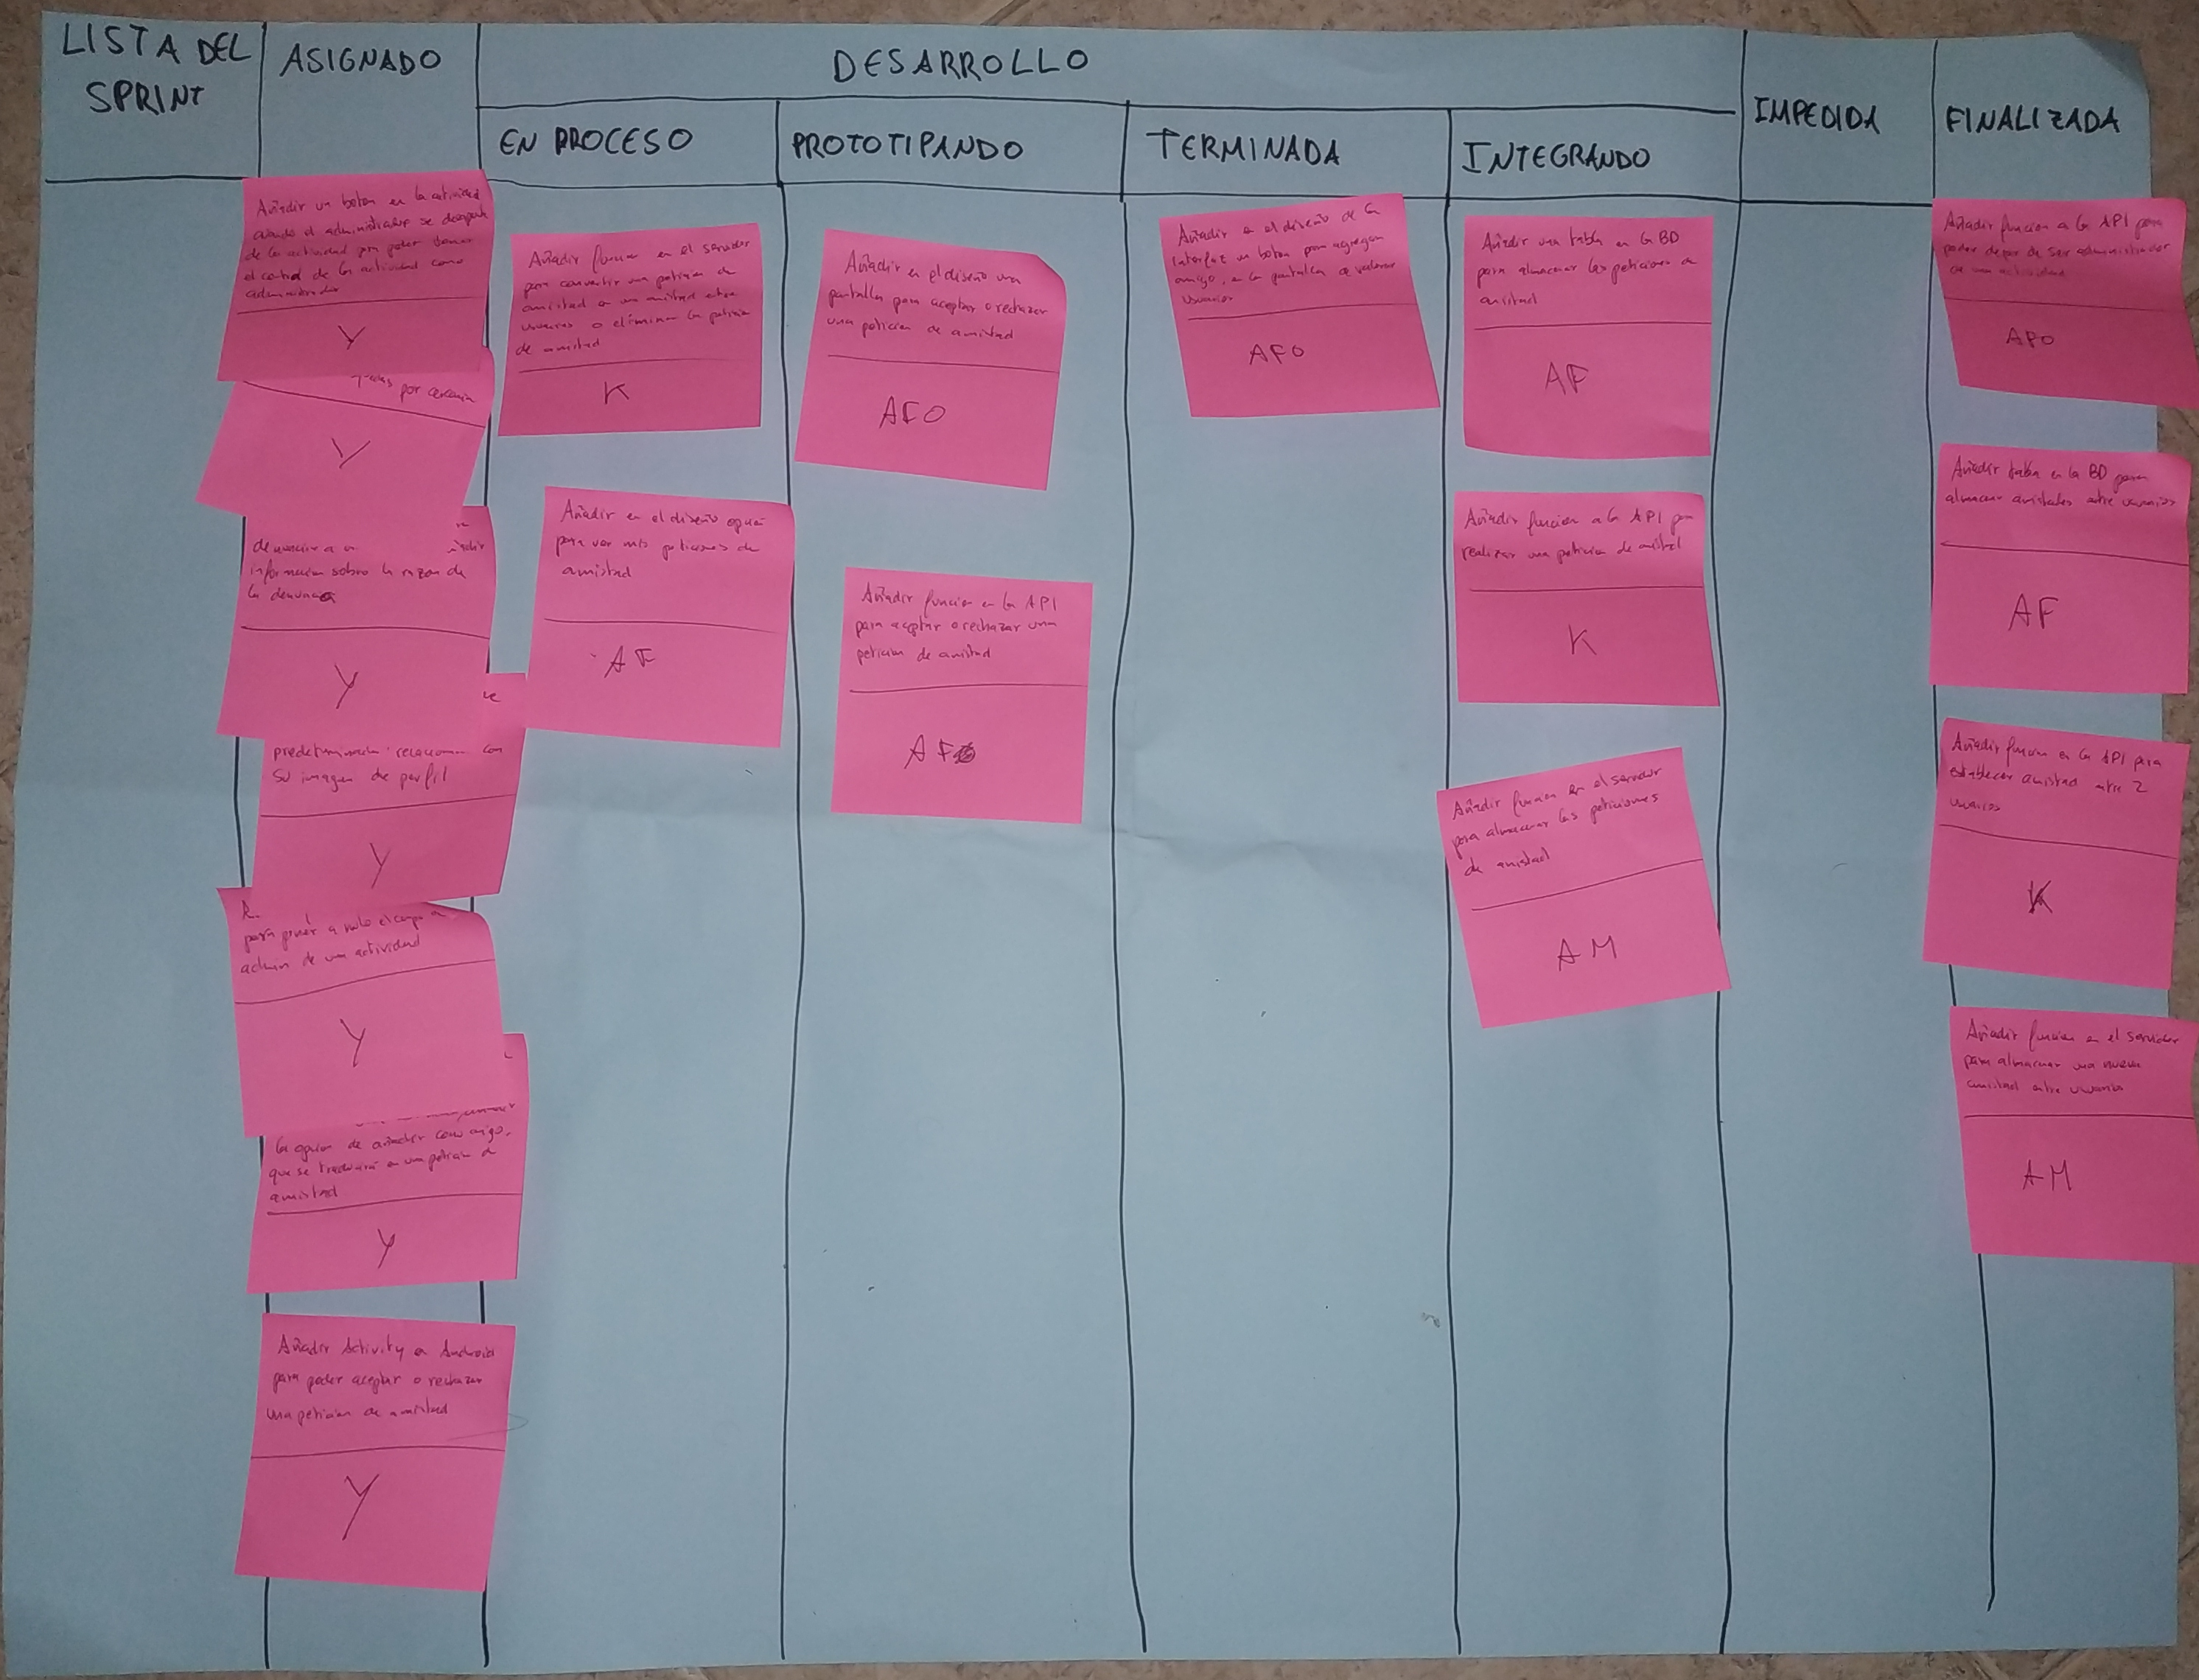 LISTA DEL
SPRINT
ASIGNADO
DESARROLLO
EN PROCESO
PROTOTIPANDO
TERMINADA
INTEGRANDO
IMPEDIDA
FINALIZADA
Añadir un boton en la actividad
cuando el administrador se
de la actividad para poder tomar
el control de la actividad como
administrador
Y
por cercania
Y
información sobre la razon de
la denuncia
Y
su imagen de perfil
Y
para poner a nulo el campo
admin de una actividad
Y
la opcion de añadir como amigo,
que se traducirá en una peticion de
amistad
Y
Añadir Activity en Android
para poder aceptar o rechazar
una peticion de amistad
Y
Añadir funcion en el servidor
para convertir una peticion de
amistad en una amistad entre
usuarios o eliminar la peticion
de amistad
K
Añadir en el diseño opción
para ver mis peticiones de
amistad
AF
Añadir en el diseño una
pantalla para aceptar o rechazar
una peticion de amistad
AFO
Añadir funcion en la API
para aceptar o rechazar una
peticion de amistad
AF
Añadir en el diseño de la
interfaz un boton para agregar
amigo, en la pantalla de valorar
usuarios
AFO
Añadir una tabla en la BD
para almacenar las peticiones de
amistad
AF
Añadir funcion a la API para
realizar una peticion de amistad
K
Añadir funcion en el servidor
para almacenar las peticiones
de amistad
AM
Añadir funcion a la API para
poder dejar de ser administrador
de una actividad
AFO
Añadir tabla en la BD para
almacenar amistades entre usuarios
AF
Añadir funcion en la API para
establecer amistad entre 2
usuarios
K
Añadir funcion en el servidor
para almacenar una nueva
amistad entre usuarios
AM